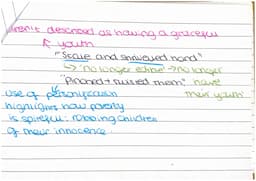 aren't described as having a graceful
↱ youth
"Stale and shrivelled hand"
↳ 'no longer edible' → no longer
"Pinched + twisted them" have
use of personification their youth
highlights how poverty
is spiteful: robbing children
of their innocence.